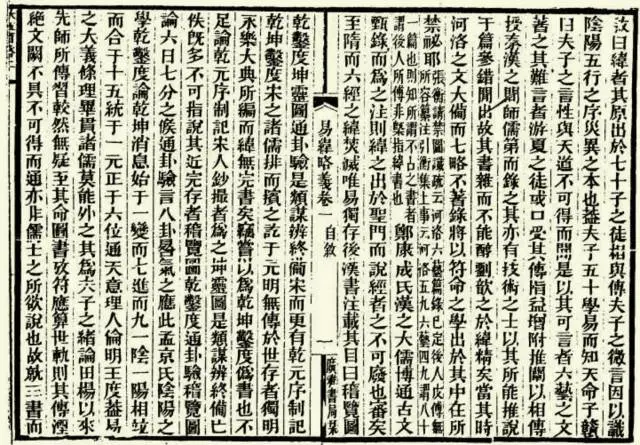 敘曰緯者其原出於七十子之徒相與傳夫子之微言因以識
陰陽五行之序災異之本也蓋夫子五十學易而知天命子贛
曰夫子之言性與天道不可得而聞是以其可言者六藝之文
著之其難言者游夏之徒或口受其傳指益增附推闡以相傳
授秦漢之閒師儒第而錄之其亦有技術之士以其所能推說
于篇參錯閒出故其書雜而不能醇劉歆之於緯精矣當其時
河洛之文大備而七略不著錄將以符命之學出於其中在所
禁祕耶張衡請禁圖讖疏云河洛六藝篇錄已定後人皮傅無
所容篡注引衡集上事云河洛五九六藝四九謂八十
一篇也則知所謂不占之書者
謂後人所傳非緊指緯書也鄭康成氏漢之大儒博通古文
甄錄而為之注則緯之出於聖門而說經者之不可廢也審矣
至隋而六經之緯焚滅唯易獨存後漢書注載其目曰稽覽圖
易緯略義卷一 自敘 一 廣雅書局栞
乾鑿度坤靈圖通卦驗是類謀辨終備宋而更有乾元序制記
乾坤鑿度宋之諸儒排而擯之訖于元明無傳於世存者獨明
永樂大典所編而緯無完書矣竊嘗以為乾坤鑿度偽書也不
足論乾元序制記宋人鈔撮者為之坤靈圖是類謀辨終備亡
佚既多不可指說其近完存者稽覽圖乾鑿度通卦驗稽覽圖
論六日七分之候通卦驗言八卦晷氣之應此孟京氏陰陽之
學乾鑿度論乾坤消息始于一變而七進而九一陰一陽相竝
而合于十五統于一元正于六位通天意理人倫明王度蓋易
之大義條理畢貫諸儒莫能外之其為夫子之緒論田楊以來
先師所傳習較然無疑至其命圖書攷符應算世軌則其傳湮
絕文闕不具不可得而通亦非儒士之所欲說也故就三書而